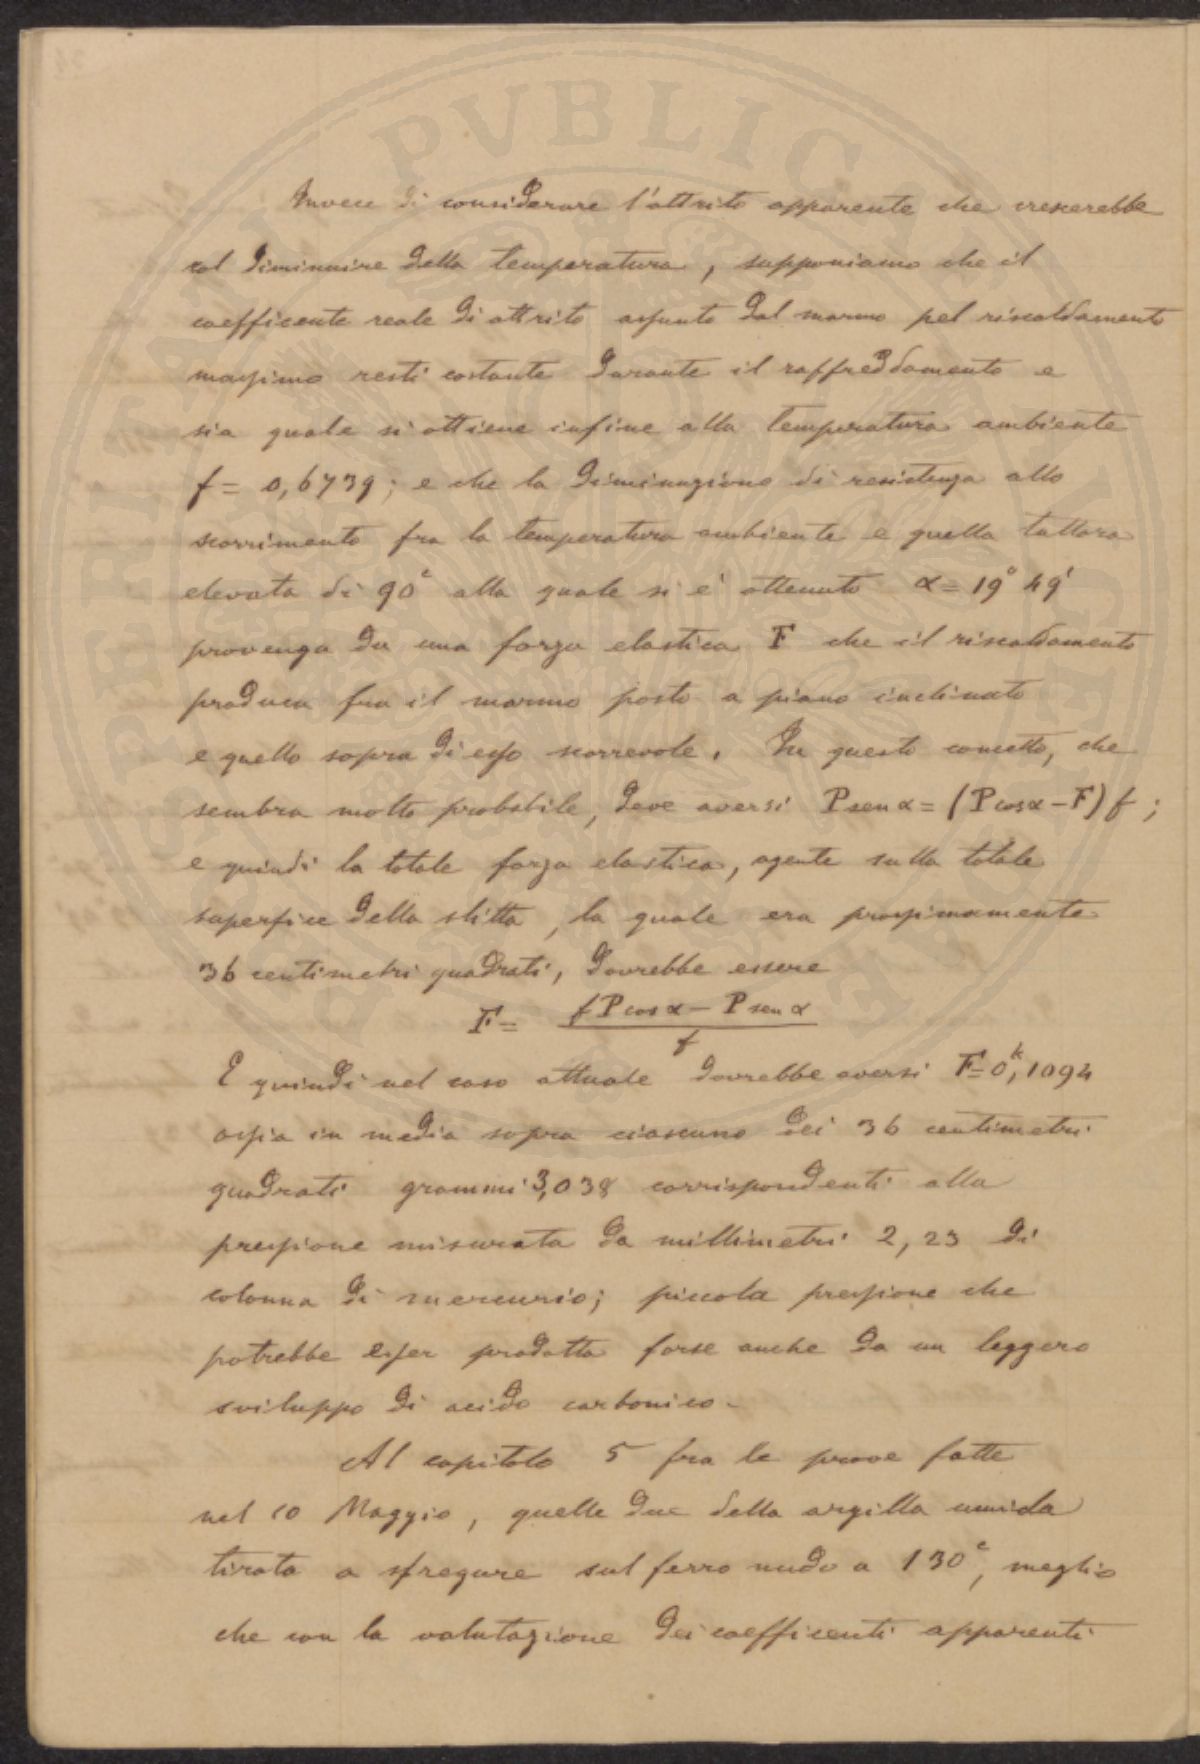 Invece di considerare l'attrito apparente che crescerebbe
col diminuire della temperatura, supponiamo che il
coefficente reale di attrito assunto dal marmo pel riscaldamento
massimo resti costante durante il raffreddamento e
sia quale si ottiene infine alla temperatura ambiente
f = 0,6739; e che la diminuzione di resistenza allo
scorrimento fra la temperatura ambiente e quella tuttora
elevata di 90° alla quale si è ottenuto α = 19° 49'
provenga da una forza elastica F che il riscaldamento
produca fra il marmo posto a piano inclinato
e quello sopra di esso scorrevole. In questo concetto, che
sembra molto probabile, deve aversi P sen α = (P cos α - F) f;
e quindi la totale forza elastica, agente sulla totale
superfice della slitta, la quale era prossimamente
36 centimetri quadrati, dovrebbe essere
F = (f P cos α - P sen α) / f
E quindi nel caso attuale dovrebbe aversi F = 0,ᵏ1094
ossia in media sopra ciascuno dei 36 centimetri
quadrati grammi 3,038 corrispondenti alla
pressione misurata da millimetri 2,23 di
colonna di mercurio; piccola pressione che
potrebbe esser prodotta forse anche da un leggero
sviluppo di acido carbonico.
Al capitolo 5 fra le prove fatte
nel 10 Maggio, quelle due della argilla umida
tirata a sfregare sul ferro nudo a 130°, meglio
che con la valutazione dei coefficenti apparenti